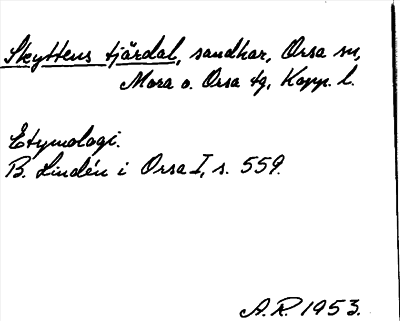 Skyttens tjärdal, sandhar, Orsa sn,
Mora o. Orsa tg, Kopp. l.
Etymologi.
B. Lindén i Orsa I, s. 559.
A.R. 1953.